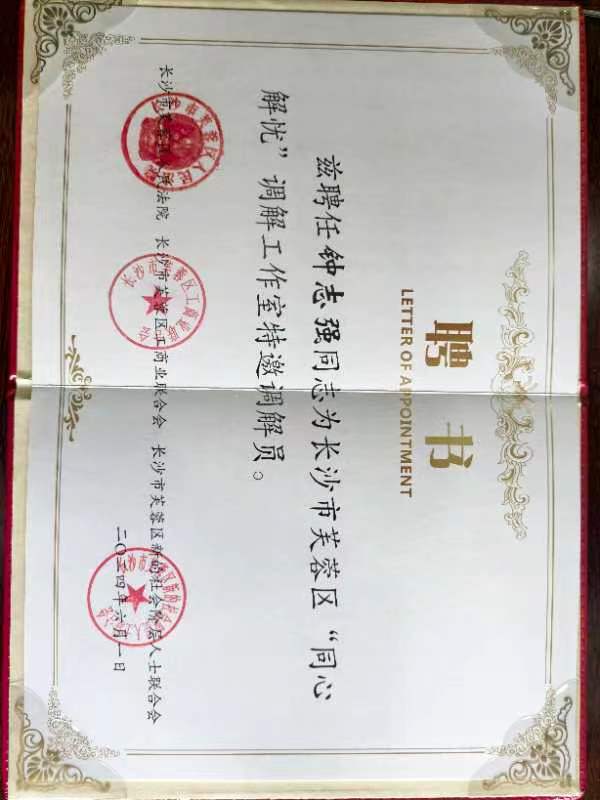 聘书
LETTER OF APPOINTMENT
兹聘任钟志强同志为长沙市芙蓉区“同心
解忧”调解工作室特邀调解员。
长沙市芙蓉区人民法院 长沙市芙蓉区工商业联合会 长沙市芙蓉区新的社会阶层人士联合会
二〇二四年六月一日